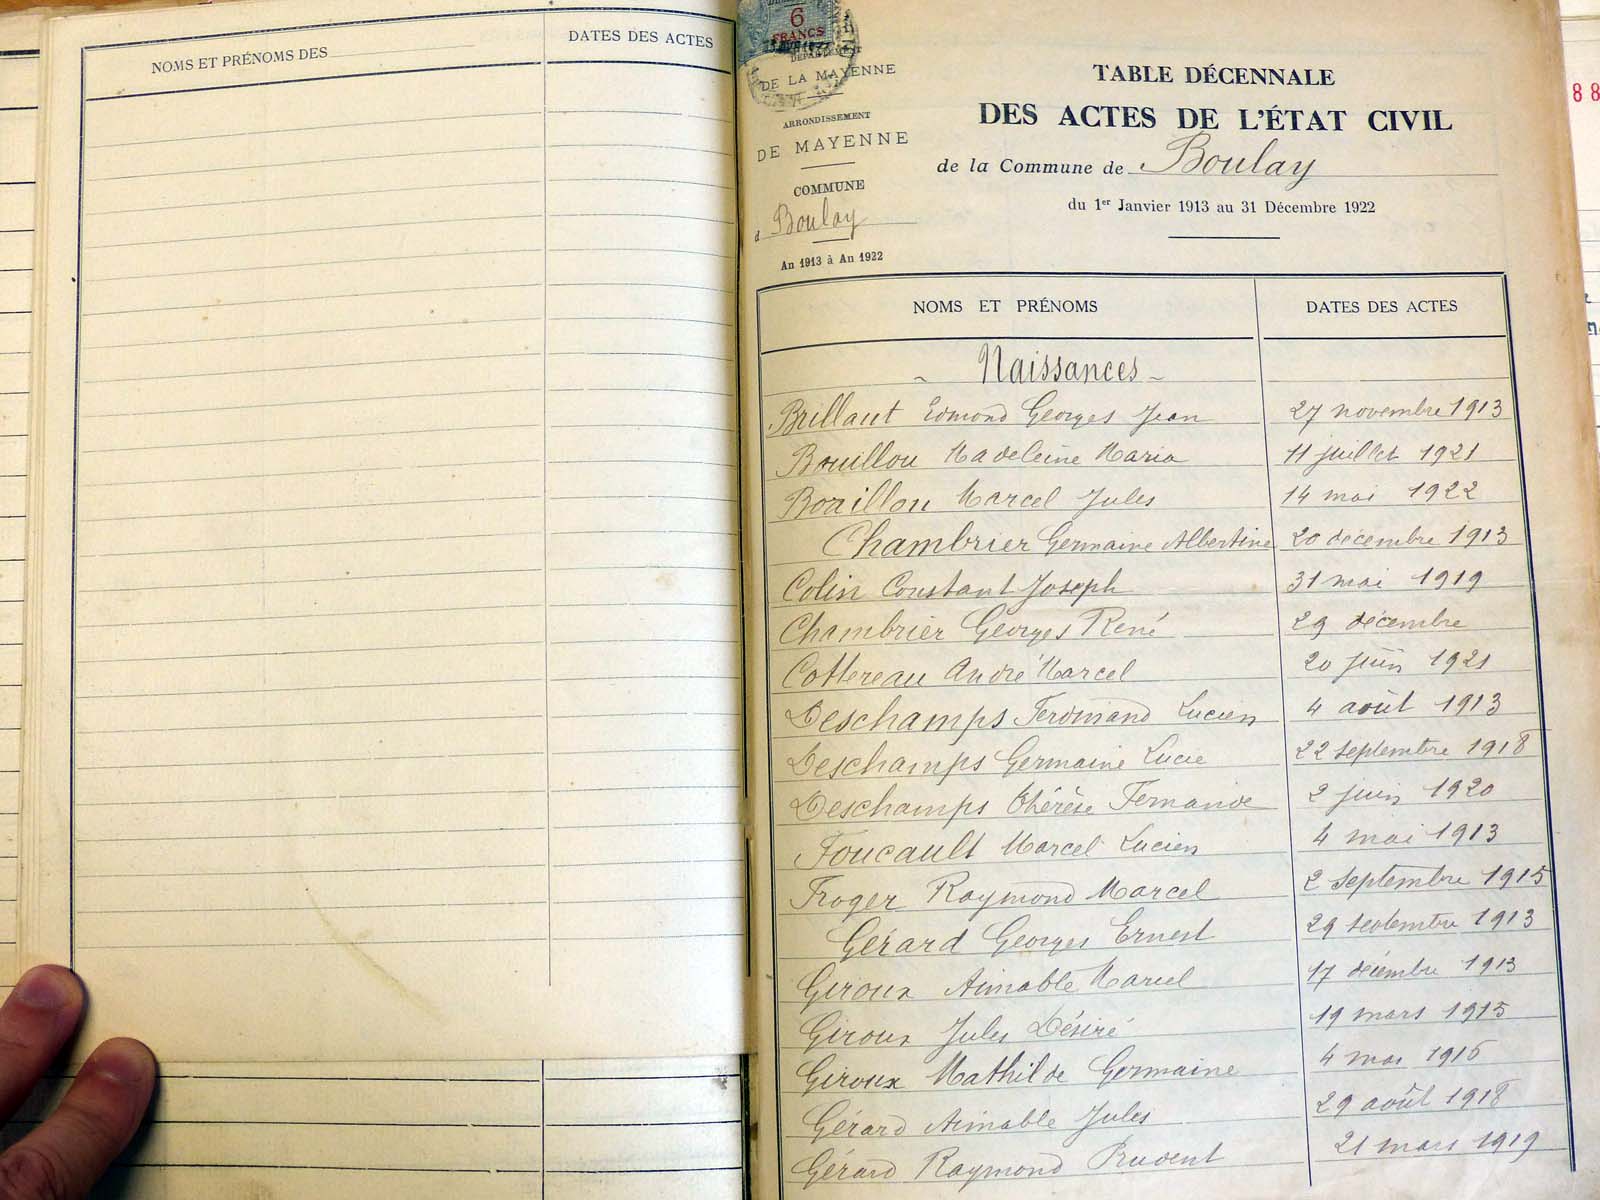 NOMS ET PRÉNOMS DES
DATES DES ACTES
6
FRANCS
DE LA MAYENNE
ARRONDISSEMENT
DE MAYENNE
COMMUNE
d Boulay
An 1913 à An 1922
TABLE DÉCENNALE
DES ACTES DE L'ÉTAT CIVIL
de la Commune de Boulay
du 1er Janvier 1913 au 31 Décembre 1922
88
NOMS ET PRÉNOMS DATES DES ACTES
- Naissances -
Brillaut Edmond Georges Jean 27 novembre 1913
Bouillon Madeleine Maria 11 juillet 1921
Bouillon Marcel Jules 14 mai 1922
Chambrier Germaine Albertine 20 décembre 1913
Colin Constant Joseph 31 mai 1919
Chambrier Georges René 29 décembre
Cottereau André Marcel 20 juin 1921
Deschamps Ferdinand Lucien 4 août 1913
Deschamps Germaine Lucie 22 septembre 1918
Deschamps Thérèse Fernande 2 juin 1920
Foucault Marcel Lucien 4 mai 1913
Froger Raymond Marcel 2 septembre 1915
Gérard Georges Ernest 29 septembre 1913
Giroux Aimable Marcel 17 décembre 1913
Giroux Jules Désiré 19 mars 1915
Giroux Mathilde Germaine 4 mai 1916
Gérard Aimable Jules 29 août 1918
Gérard Raymond Prudent 21 mars 1919